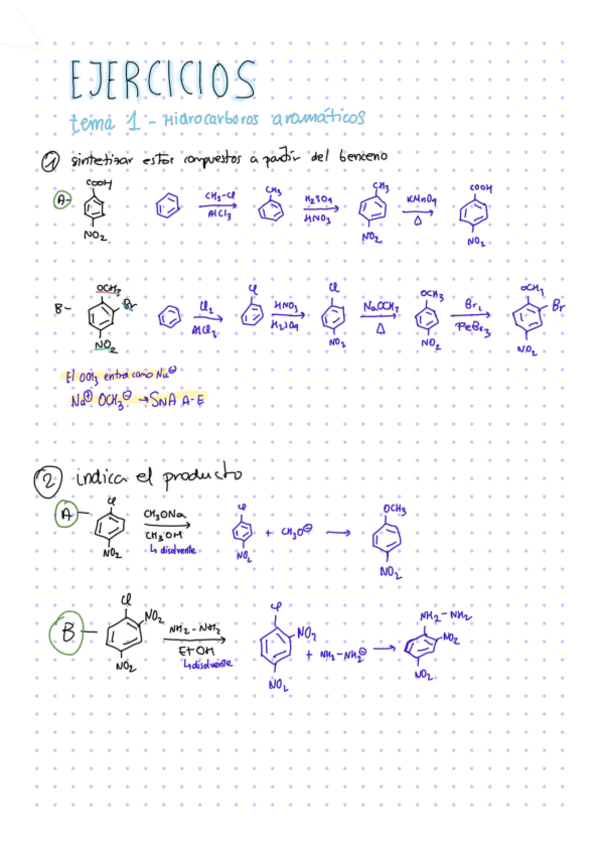 EJERCICIOS
tema 1 - Hidrocarburos aromáticos
1 sintetizar estos compuestos a partir del benceno
A- COOH NO2 CH3-Cl AlCl3 CH3 H2SO4 HNO3 CH3 NO2 KMnO4 Δ COOH NO2
B- OCH3 Br NO2 Cl2 AlCl3 Cl HNO3 H2SO4 Cl NO2 NaOCH3 Δ OCH3 NO2 Br2 FeBr3 OCH3 Br NO2
El OCH3 entra como Nu⊖
Na⊕ OCH3⊖ → SNA A-E
2 indica el producto
A- Cl NO2 CH3ONa CH3OH ↳ disolvente Cl NO2 + CH3O⊖ → OCH3 NO2
B- Cl NO2 NO2 NH2-NH2 EtOH ↳ disolvente Cl NO2 NO2 + NH2-NH2⊖ → NH2-NH2 NO2 NO2